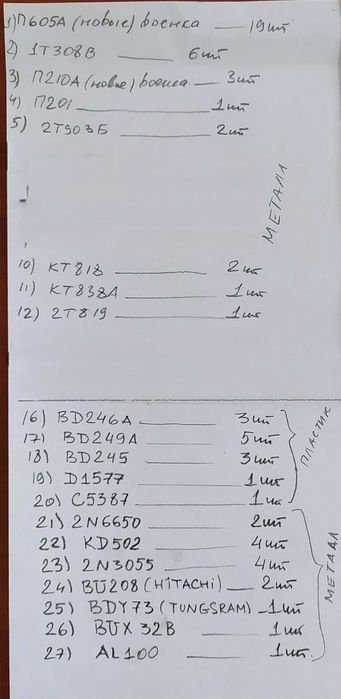 1) П605А (новые) военка — 19 шт
2) 1Т308В — 6 шт
3) П210А (новые) военка — 3 шт
4) П201 — 1 шт
5) 2Т903Б — 2 шт
МЕТАЛЛ
10) КТ818 — 2 шт
11) КТ838А — 1 шт
12) 2Т819 — 1 шт
16) BD246A — 3 шт
17) BD249A — 5 шт
18) BD245 — 3 шт
19) D1577 — 1 шт
20) C5387 — 1 шт
ПЛАСТИК
21) 2N6650 — 2 шт
22) KD502 — 4 шт
23) 2N3055 — 4 шт
24) BU208 (HITACHI) — 2 шт
25) BDY73 (TUNGSRAM) — 1 шт
26) BUX 32B — 1 шт
27) AL100 — 1 шт.
МЕТАЛЛ